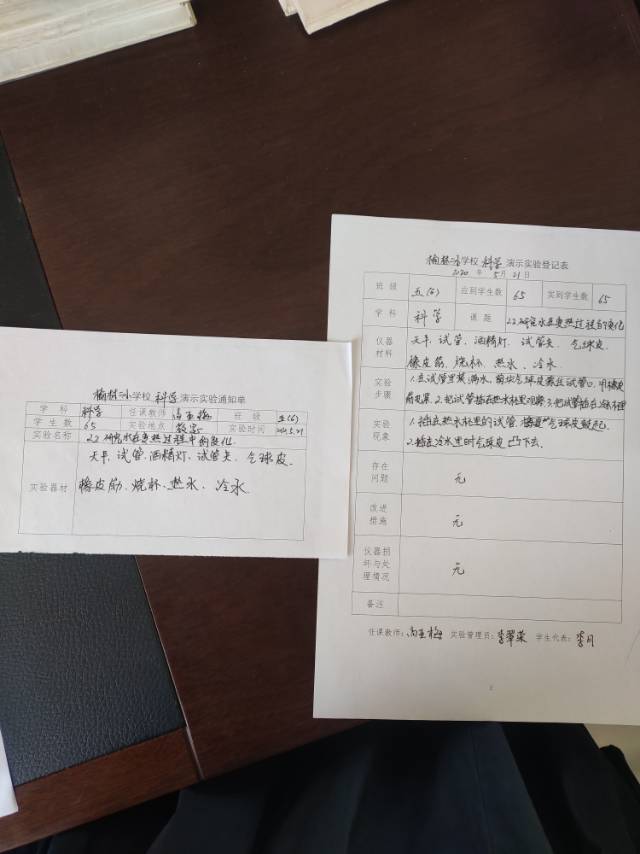 榆林小学校 科学 演示实验通知单
学 科 科学 任课教师 高亚梅 班 级 五(6)
学 生 数 65 实验地点 教室 实验时间 5.21
实验名称 22 研究水在变热过程中的变化
实验器材 天平、试管、酒精灯、试管夹、气球皮、
橡皮筋、烧杯、热水、冷水
榆林小学校 科学 演示实验登记表
2020 年 5 月 21 日
班 级 五(6) 应到学生数 65 实到学生数 65
学 科 科学 课 题 22 研究水在变热过程中的变化
仪器材料 天平、试管、酒精灯、试管夹、气球皮、
橡皮筋、烧杯、热水、冷水
实验步骤 1.在试管里装满水,气球皮蒙在试管口,用橡皮
筋2.把试管插在热水杯里观察3.把试管插在冷水里
实验现象 1.插在热水杯里的试管,气球皮鼓起。
2.插在冷水里时气球皮凹下去。
存在问题 无
改进措施 无
仪器损坏与处理情况 无
备注
任课教师:高亚梅 实验管理员:李翠荣 学生代表:李月